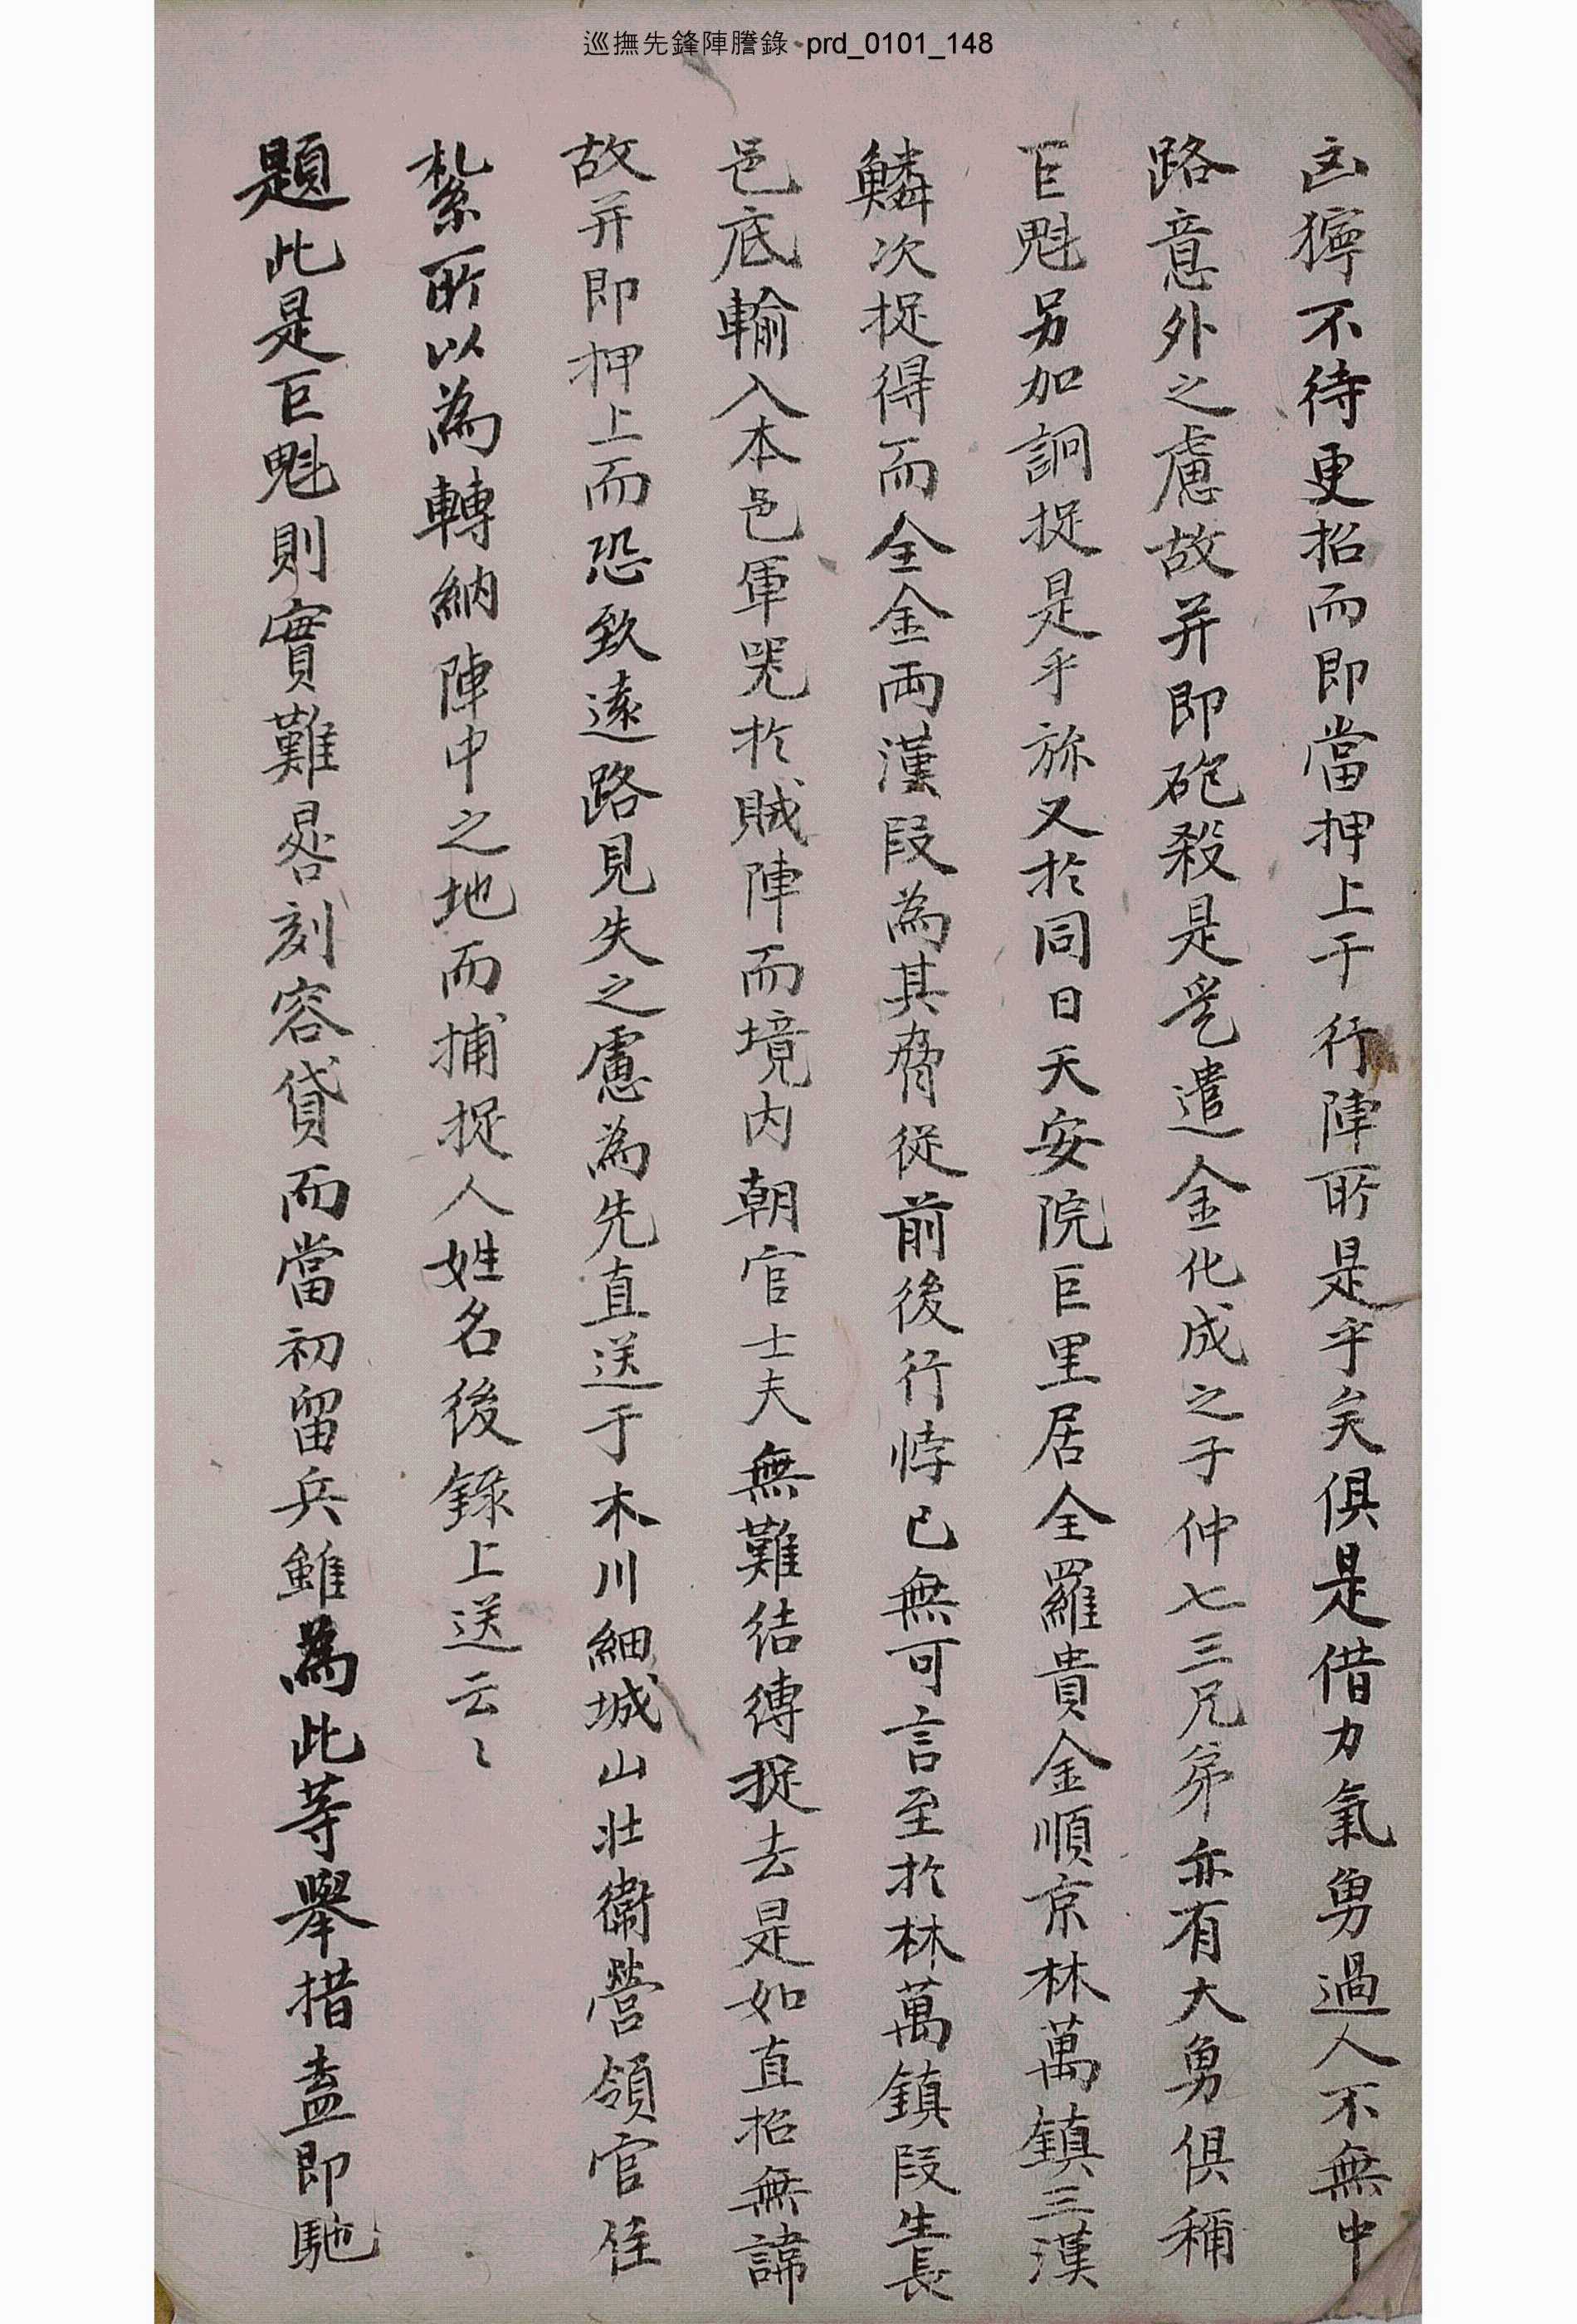 巡撫先鋒陣謄錄 prd_0101_148
凶獰不待更招而卽當押上于 行陣所是乎矣俱是借力氣勇過人不無中
路意外之慮故并卽砲殺是乎遣金化成之子仲七三兄弟亦有大勇俱稱
巨魁另加詗捉是乎旀又於同日天安院巨里居全羅貴金順京林萬鎭三漢
鱗次捉得而全金兩漢段為其脅從前後行悖已無可言至於林萬鎭段生長
邑底輸入本邑軍器於賊陣而境內朝官士夫無難結縛捉去是如直招無諱
故并卽押上而恐致遠路見失之慮為先直送于木川細城山壯衛營領官住
紮所以為轉納陣中之地而捕捉人姓名後錄上送云〻
題此是巨魁則實難晷刻容貸而當初留兵雖為此等擧措盍卽馳